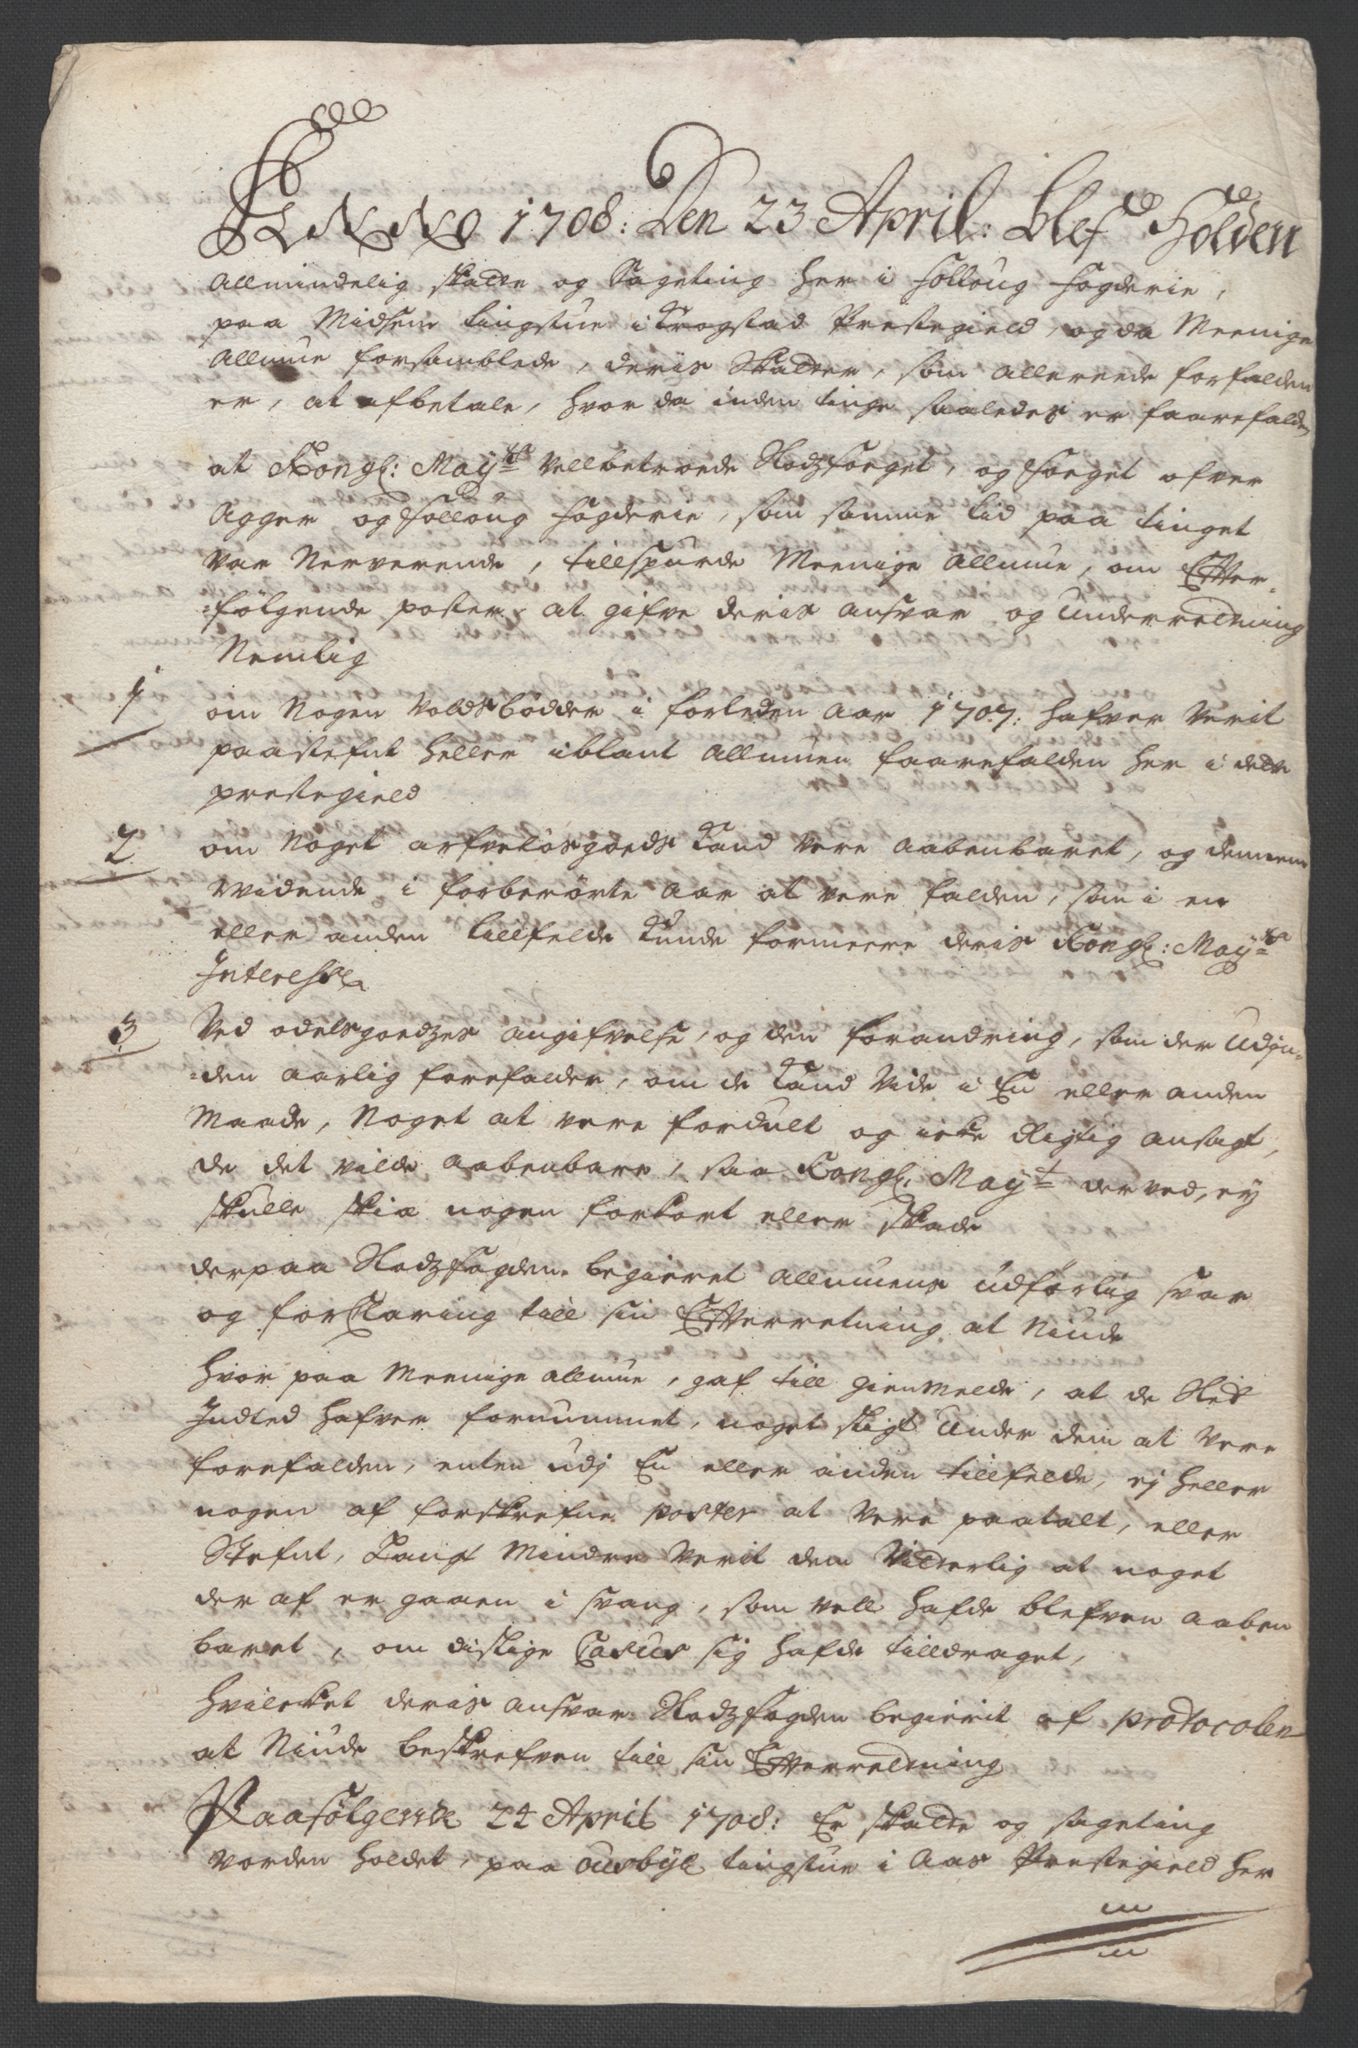 Anno 1708: Den 23 April: blef Holden
Allmindelig skatte og Sageting her i Folloug fogderie,
paa Midsem tingstue i Krogstad Prestegield, og da Meenige
Allmue forsamblede, deris Skatter, som allereede forfalden
er, at afbetale, hvor da inden tinge saaledes er faarefalden
at Kongl: Mayts Vellbetroede Raadzforget, og forget ofver
Agger og Follong fogderie, som samme tid paa tinget
var Nerverende, tillspurde Meenige Allmue, om Effter-
=følgende poster at gifve deris ansvar og Underretning
Nemlig
1 om Nogen Voldsbøder i forleden Aar 1707: hafver Verit
paastefnt heller iblant Allmuen faarefalden her i dette
prestegield
2 om Noget arfveløsgoeds Kand Vere Aabenbaret, og dennem
Widende i forberørte Aar at vere falden, som i en
eller anden tillfelde Kunde formeere deris Kongl: Mayts
Interesse
3 Ved odelsgoedzes angifvelse, og den forandring, som der Udju=
=den aarlig forefalder, om de Kand Vide i En eller anden
Maade, Noget at vere fordult og icke Rigtig ansagt,
de det vilde aabenbare, saa Kongl. Mayt derved, ey
skulle skie nogen forkort eller skade
derpaa Raadzfogden begieret Allmuens udførlig svar
og forklaring till sin Effterretning at Niude
hvor paa Meenige allmue, gaf till gienmelde, at de Slet
Indted hafver fornummet, noget sligt Under dem at Vere
forefalden, enten udj En eller anden tillfelde, ej heller
nogen af forskrefne poster at Vere paatalt, eller
Stefnt, Langt Mindre Verit dem Vitterlig at noget
der af er gaaen i svang, som vell hafde blefven aaben
baret, om dislige Casus sig hafde tilldraget,
hvilcket deris ansvar Raadzfogden begierit af protocolen
at Niude beskrefven till sin Effterretning
Paafølgende 24 April 1708: Er skatte og sageting
vorden holdet, paa ousbÿe tingstue i Aas Prestegield her